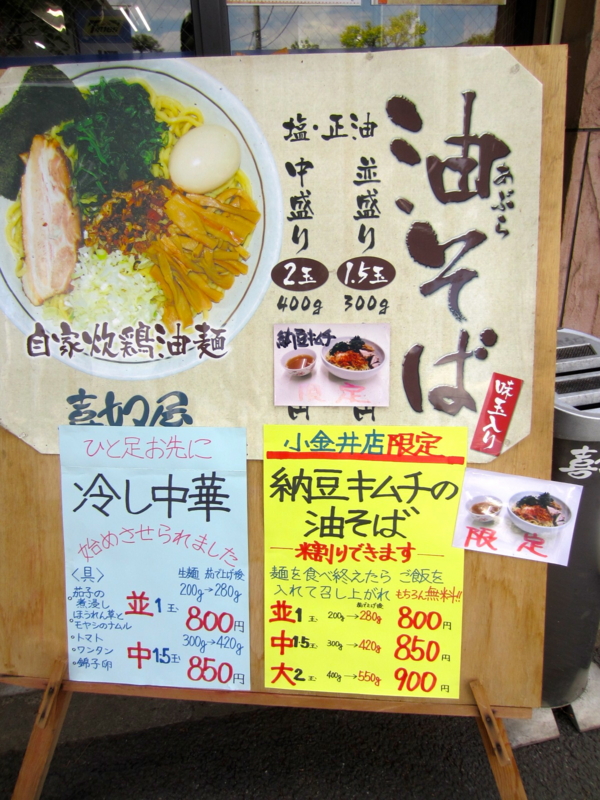 油そば
あぶら
味玉入り
塩・正油
並盛り
1.5玉
300g
円
中盛り
2玉
400g
円
自家炊鶏油麺
喜如屋
納豆キムチ
限定
ひと足お先に
冷し中華
始めさせられました
〈具〉
・茄子の煮浸し
・ほうれん草とモヤシのナムル
・トマト
・ワンタン
・錦糸卵
生麺 茹で上げ後
200g→280g
並1玉 800円
300g→420g
中1.5玉 850円
小金井店限定
納豆キムチの
油そば
米割りできます
麺を食べ終えたら ご飯を
入れて召し上がれ もちろん無料!!
茹で上げ後
並1玉 200g→280g 800円
中1.5玉 300g→420g 850円
大2玉 400g→550g 900円
限定
喜